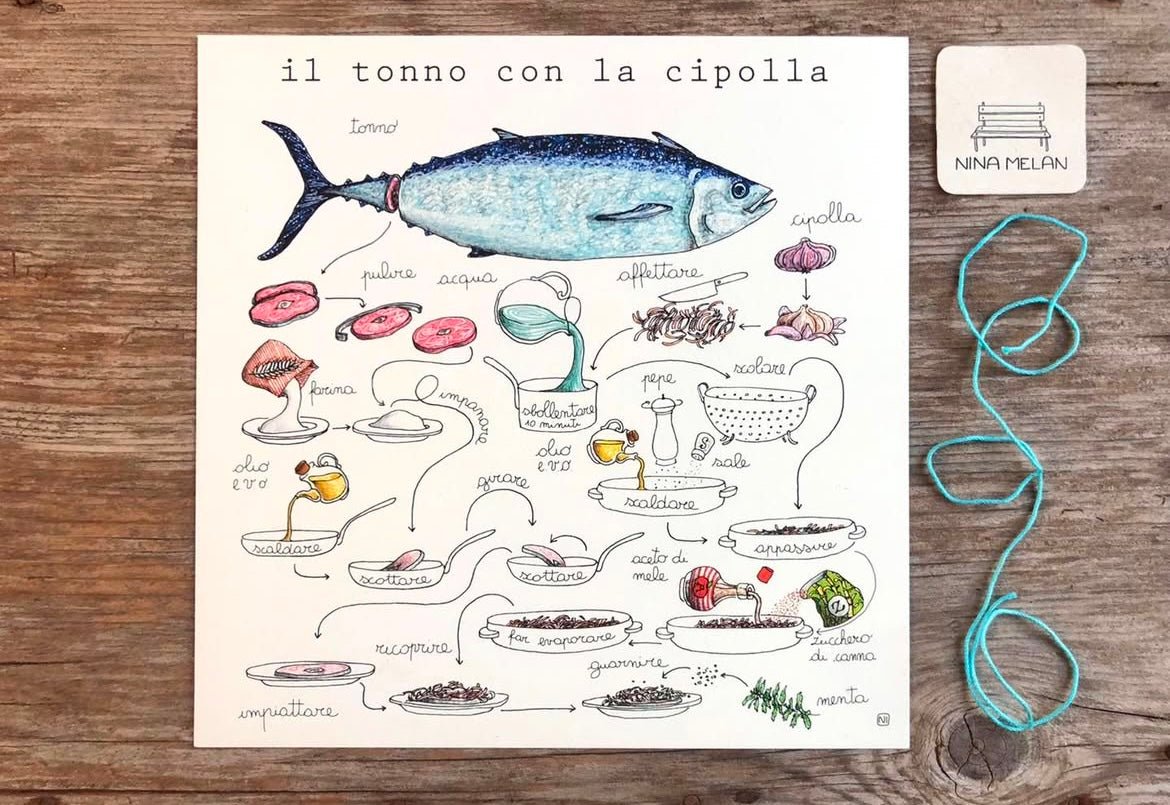 il tonno con la cipolla
NINA MELAN
tonno
cipolla
pulire
acqua
affettare
farina
impanare
sbollentare
10 minuti
pepe
scolare
olio
e v o
scaldare
girare
olio
e v o
sale
scaldare
scottare
scottare
appassire
aceto di
mele
zucchero
di canna
far evaporare
ricoprire
impiattare
guarnire
menta
S
Z
NI